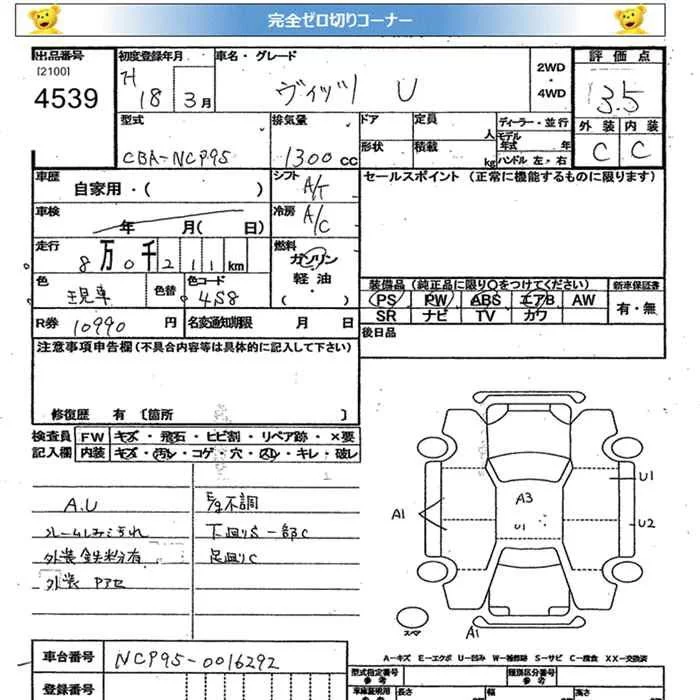 完全ゼロ切りコーナー
出品番号 初度登録年月 車名・グレード 2WD・4WD 評価点
[2100]
4539 H 18 3月 ヴィッツ U 3.5
型式 排気量 ドア 定員 人 ディーラー・並行 外装 内装
CBA-NCP95 1300cc 形状 積載 kg モデル年式 年 C C
ハンドル 左・右
車歴 自家用・( ) シフト A/T セールスポイント (正常に機能するものに限ります)
車検 年 月( 日) 冷房 A/C
走行 8万0千211km 燃料 ガソリン
軽油
・( )
色 色替 色コード 458 装備品 (純正品に限り○をつけてください) 新車保証書
PS PW ABS エアB AW 有・無
SR ナビ TV カワ
R券 10990円 名変通知期限 月 日 後日品
注意事項申告欄 (不具合内容等は具体的に記入して下さい)
修復歴 有 〔箇所 〕
検査員 FW キズ・飛石・ヒビ割・リペア跡・×要
記入欄 内装 キズ・汚レ・コゲ・穴・スレ・キレ・破レ
A.U E/g不調
ルームしみ汚れ 下廻りS一部C
外装鉄粉有 足廻りC
外装 Pアセ
A3 U1
U1
A1 U2
スペア
A1
車台番号 NCP95-0016292
A−キズ E−エクボ U−凹み W−補修跡 S−サビ C−腐食 XX−交換済
登録番号 型式指定番号 参考 種別区分番号 参考
車検証明用 参考 長さ 幅 高さ